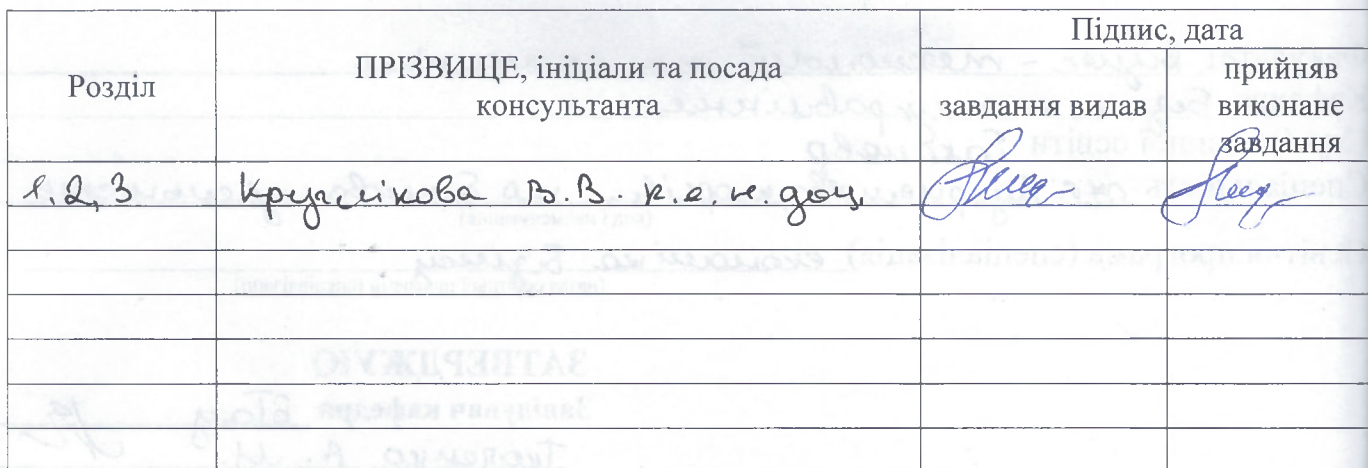 Розділ
ПРІЗВИЩЕ, ініціали та посада
консультанта
Підпис, дата
завдання видав
прийняв
виконане
завдання
1,2,3 Круглікова В.В. к.е.н. доц.